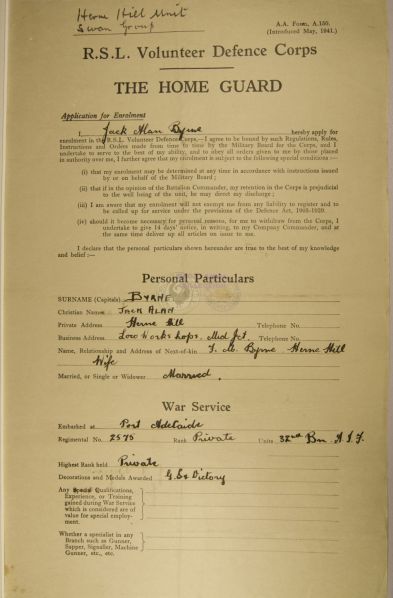 Herne Hill Unit
Swan Group
A.A. Form, A.150.
(Introduced May, 1941.)
R.S.L. Volunteer Defence Corps
THE HOME GUARD
Application for Enrolment
I, Jack Alan Byrne hereby apply for
enrolment in the R.S.L. Volunteer Defence Corps,—I agree to be bound by such Regulations, Rules,
Instructions and Orders made from time to time by the Military Board for the Corps, and I
undertake to serve to the best of my ability, and to obey all orders given to me by those placed
in authority over me, I further agree that my enrolment is subject to the following special conditions :—
(i) that my enrolment may be determined at any time in accordance with instructions issued
by or on behalf of the Military Board ;
(ii) that if in the opinion of the Battalion Commander, my retention in the Corps is prejudicial
to the well being of the unit, he may direct my discharge ;
(iii) I am aware that my enrolment will not exempt me from any liability to register and to
be called up for service under the provisions of the Defence Act, 1903-1939.
(iv) should it become necessary for personal reasons, for me to withdraw from the Corps, I
undertake to give 14 days' notice, in writing, to my Company Commander, and at
the same time deliver up all articles on issue to me.
I declare that the personal particulars shown hereunder are true to the best of my knowledge
and belief :—
Personal Particulars
SURNAME (Capitals) BYRNE
Christian Names JACK ALAN
Private Address Herne Hill Telephone No.
Business Address Loco Workshops. Mid Jct. Telephone No.
Name, Relationship and Address of Next-of-kin M. Byrne Herne Hill
Wife
Married, or Single or Widower Married.
War Service
Embarked at Port Adelaide
Regimental No. 2575 Rank Private Units 32nd Bn A.I.F.
Highest Rank held Private
Decorations and Medals Awarded G.S. Victory
Any Special Qualifications,
Experience, or Training
gained during War Service
which is considered are of
value for special employ-
ment.
Whether a specialist in any
Branch such as Gunner,
Sapper, Signaller, Machine
Gunner, etc., etc.